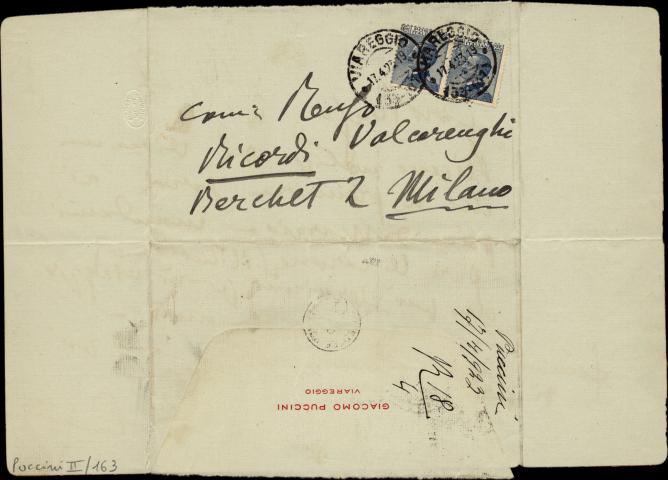 VIAREGGIO
17.4.23.19
VIAREGGIO
17.4.23.19
Renzo
Ricordi Valcarenghi
Berchet 2 Milano
Puccini
17/4/923
R 18
4
GIACOMO PUCCINI
VIAREGGIO
Puccini II/163